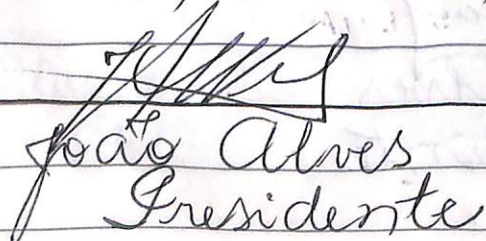 João Alves
Presidente